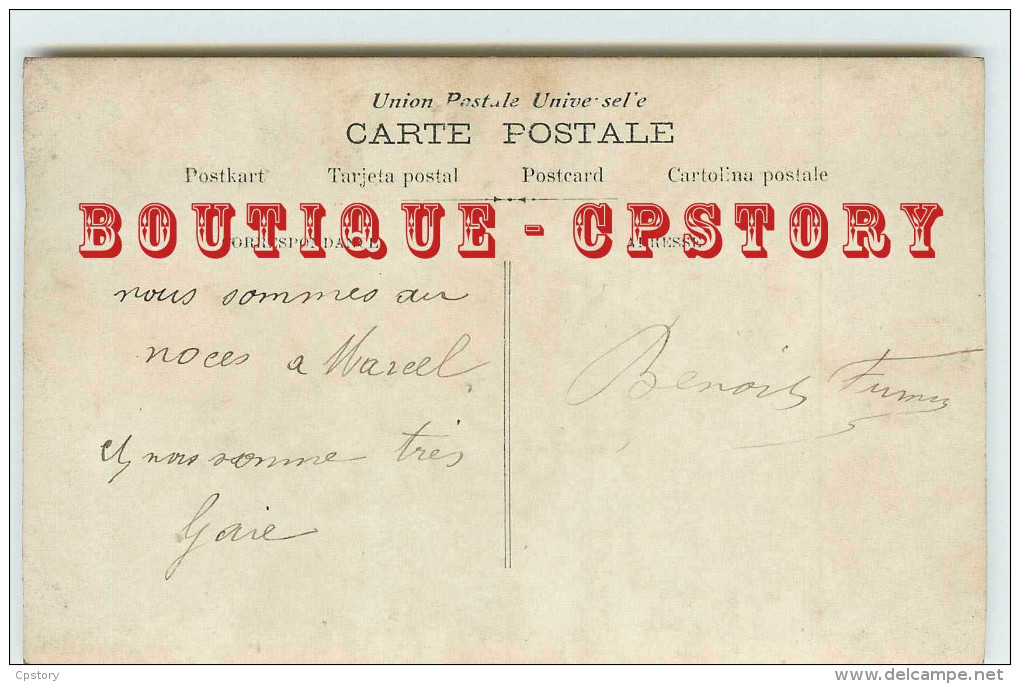 Union Postale Universel'e
CARTE POSTALE
Postkart Tarjeta postal Postcard Cartolina postale
BOUTIQUE - CPSTORY
CORRESPONDANCE ADRESSE
nous sommes au
noces a Marcel
et nous somme très
Gaie
Benoit
Cpstory www.delcampe.net